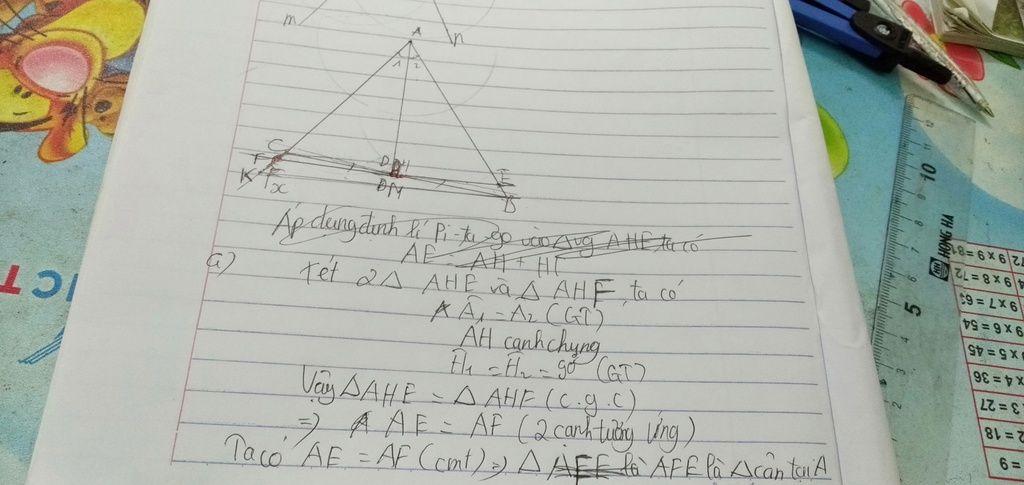 m
n
A
1 2
C
F
K
x
D H
M
E
B
Áp dụng định lí Pi-ta-go vào Δvg AHE ta có
AE = AH + HE
a) Xét 2Δ AHE và Δ AHF, ta có
Â1 = Â2 (GT)
AH cạnh chung
Ĥ1 = Ĥ2 = 90° (GT)
Vậy ΔAHE = Δ AHF (c.g.c)
=> AE = AF (2 cạnh tương ứng)
Ta có AE = AF (cmt) => Δ AEF là AFE là Δ cân tại A
HONG HA
10
5
9 x 9 = 81
9 x 8 = 72
9 x 7 = 63
9 x 6 = 54
9 x 5 = 45
x 4 = 36
3 = 27
2 = 18
= 9